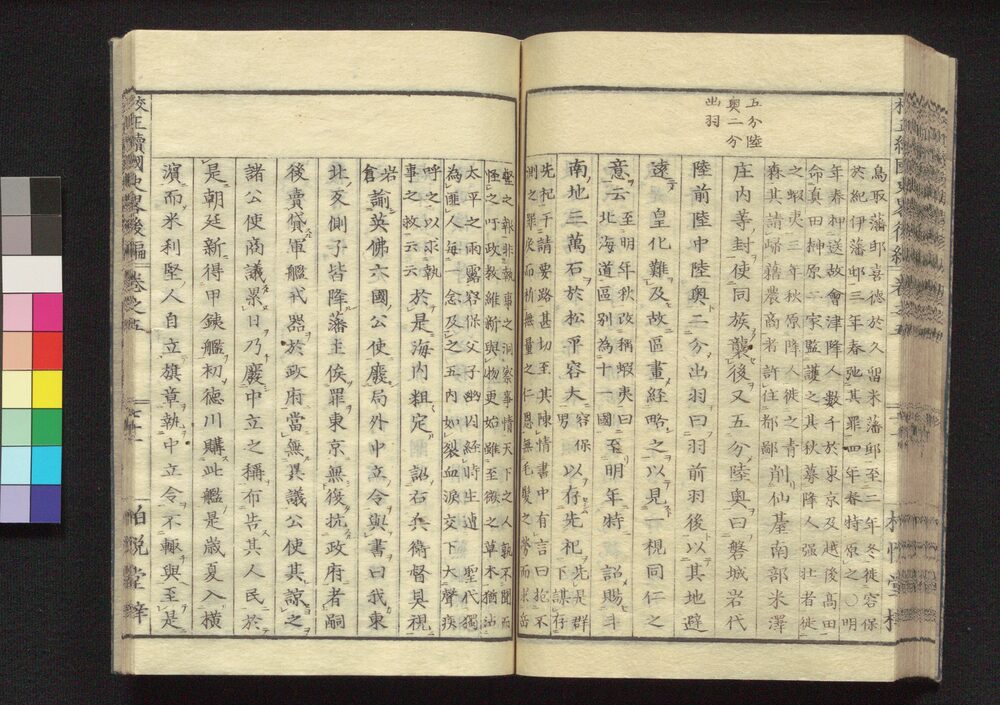 五分陸
奥二分
出羽
鳥取藩邸喜徳於久留米藩邸至二年冬徙容保
於紀伊藩邸三年春弛其罪四年春特原之〇明
年春押送故會津降人數千於東京及越後高田
命真田榊原二家監護之其秋募降人强壮者徙
之蝦夷三年秋原降人徙之青
森其請歸籍農商者許住都鄙削仙䑓南部米澤
庄内等封使同族襲後又五分陸奥曰磐城岩代
陸前陸中陸奥二分出羽曰羽前羽後以其地避
遠皇化難及故區畫經略之以見一視同仁之
意云至明年秋改稱蝦夷曰
北海道區别為十一國至明年特詔賜斗
南地三萬石於松平容大容保
男以存先祀先是群
下謀存
先祀干請要路甚切至其陳情書中有言曰抱不
測之罪戾而荷無量之仁恩無毛髮之勞而
聖之報非執事之洞察事情天下之人孰不聞而
怪之吁政教維新與物更始雖至微之草木猶沾
太平之雨露容保父子幽囚經時生逋聖代獨
為匪人每一念及之五内如裂血淚交下大聲疾
呼之以求執
事之救云云於是海内粗定詔召兵衛督具視
岩
倉諭英佛六國公使廢局外中立令與書曰我東
北反側子皆降藩主俟罪東京無復抗政府者嗣
後賣貸軍艦戎器於政府當無異議公使其諒之
諸公使商議累日乃廢中立之稱布告其人民於
是朝廷新得甲銕艦初德川購此艦是歲夏入横
濱而米利堅人自立旗章執中立令不輙與至是
校正續國史畧後編 卷之五
柏悅堂梓